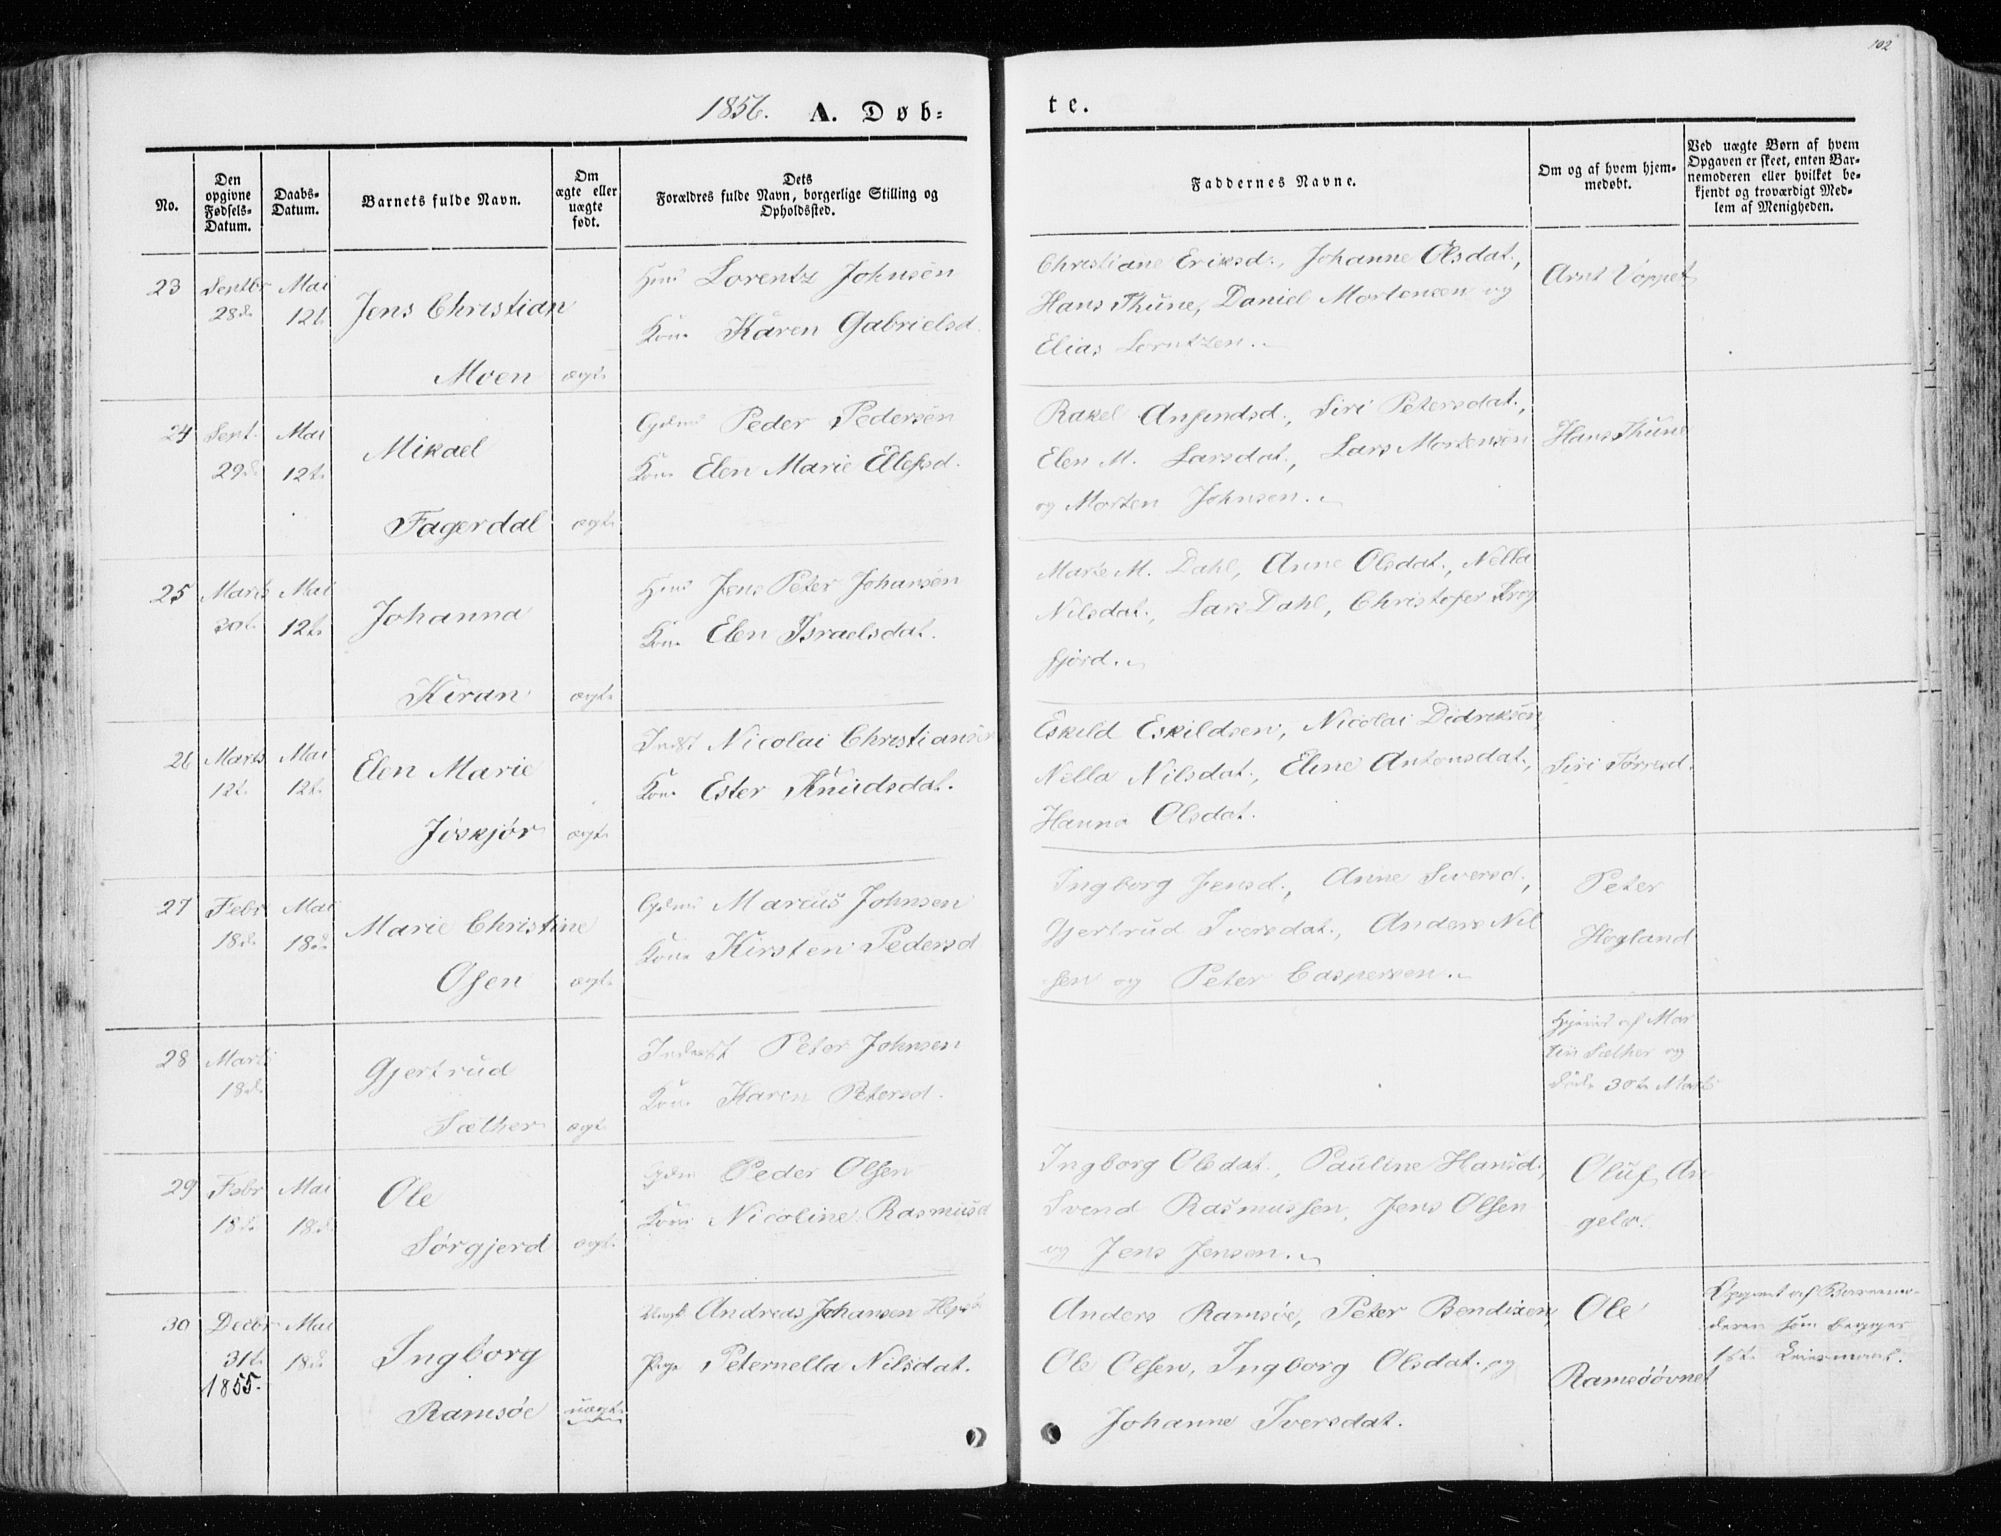 102
1856. A. Døb=
te.
No.
Den opgivne Fødsels-Datum.
Daabs-Datum.
Barnets fulde Navn.
Om ægte eller uægte født.
Dets Forældres fulde Navn, borgerlige Stilling og Opholdssted.
Faddernes Navne.
Om og af hvem hjemmedøbt.
Ved uægte Børn af hvem Opgaven er skeet, enten Barnemoderen eller hvilket bekjendt og troværdigt Medlem af Menigheden.
23 Septbr Mai
28de 12te
Jens Christian
Moen ægte
Lorentz Johnsen
Kone Karen Gabrielsd.
Christiane Eriksd., Johanne Olsdat.,
Hans Thune, Daniel Mortensen og
Elias Lorntzen.
Arnt Voppet
24 Sept. Mai
29de 12te
Mikael
Fagerdal ægte
Peder Pedersen
Kone Elen Marie Ellefsd.
Rakel Anfindsd., Siri Petersdat.,
Elen M. Larsdat., Lars Mortensen
og Morten Johnsen.
Hans Thune
25 Marts Mai
12te
Johanna
Kiran ægte
Jens Peter Johansen
Kone Elen Israelsdat.
Marie M. Dahl, Anne Olsdat., Nella
Nilsdat., Lars Dahl, Christofer Krog
fjord.
26 Marts Mai
12te 12te
Elen Marie
Jøskjør ægte
Indst Nicolai Christiansen
Kone Ester Knudsdat.
Eskild Eskildsen, Nicolai Didriksen
Nella Nilsdat., Eline Antonsdat.,
Hanna Olsdat.
Siri Tørresd.
27 Febr Mai
18de 18de
Marie Christine
Osen ægte
Marcus Johnsen
Kone Kirsten Pedersd
Ingborg Jensd., Anne Siversd.,
Gjertrud Iversdat., Anders Nil
sen og Peter Caspersen.
Peter
Hogland
28 Marts
18de
Gjertrud
Sæther ægte
Inderst Peter Johnsen
Kone Karen Petersd.
af Mar
tin Sæther og
døde 30te Marts
29 Febr Mai
18de 18de
Ole
Sørgjerd ægte
Peder Olsen
Kone Nicoline Rasmusd
Ingborg Olsdat., Pauline Hansd.,
Svend Rasmussen, Jens Olsen
og Jens Jensen.
Oluf An
gelo.
30 Decbr Mai
31te 18de
1855.
Ingborg
Ramsøe uægte
Ungk Andreas Johansen
Pige Peternella Nilsdat.
Anders Ramsøe, Peter Bendixen,
Ole Olsen, Ingborg Olsdat. og
Johanne Iversdat.
Ole
Ramsøøvnet
Opgivet af Barnemo-
deren som begges
1ste Leiermaal.